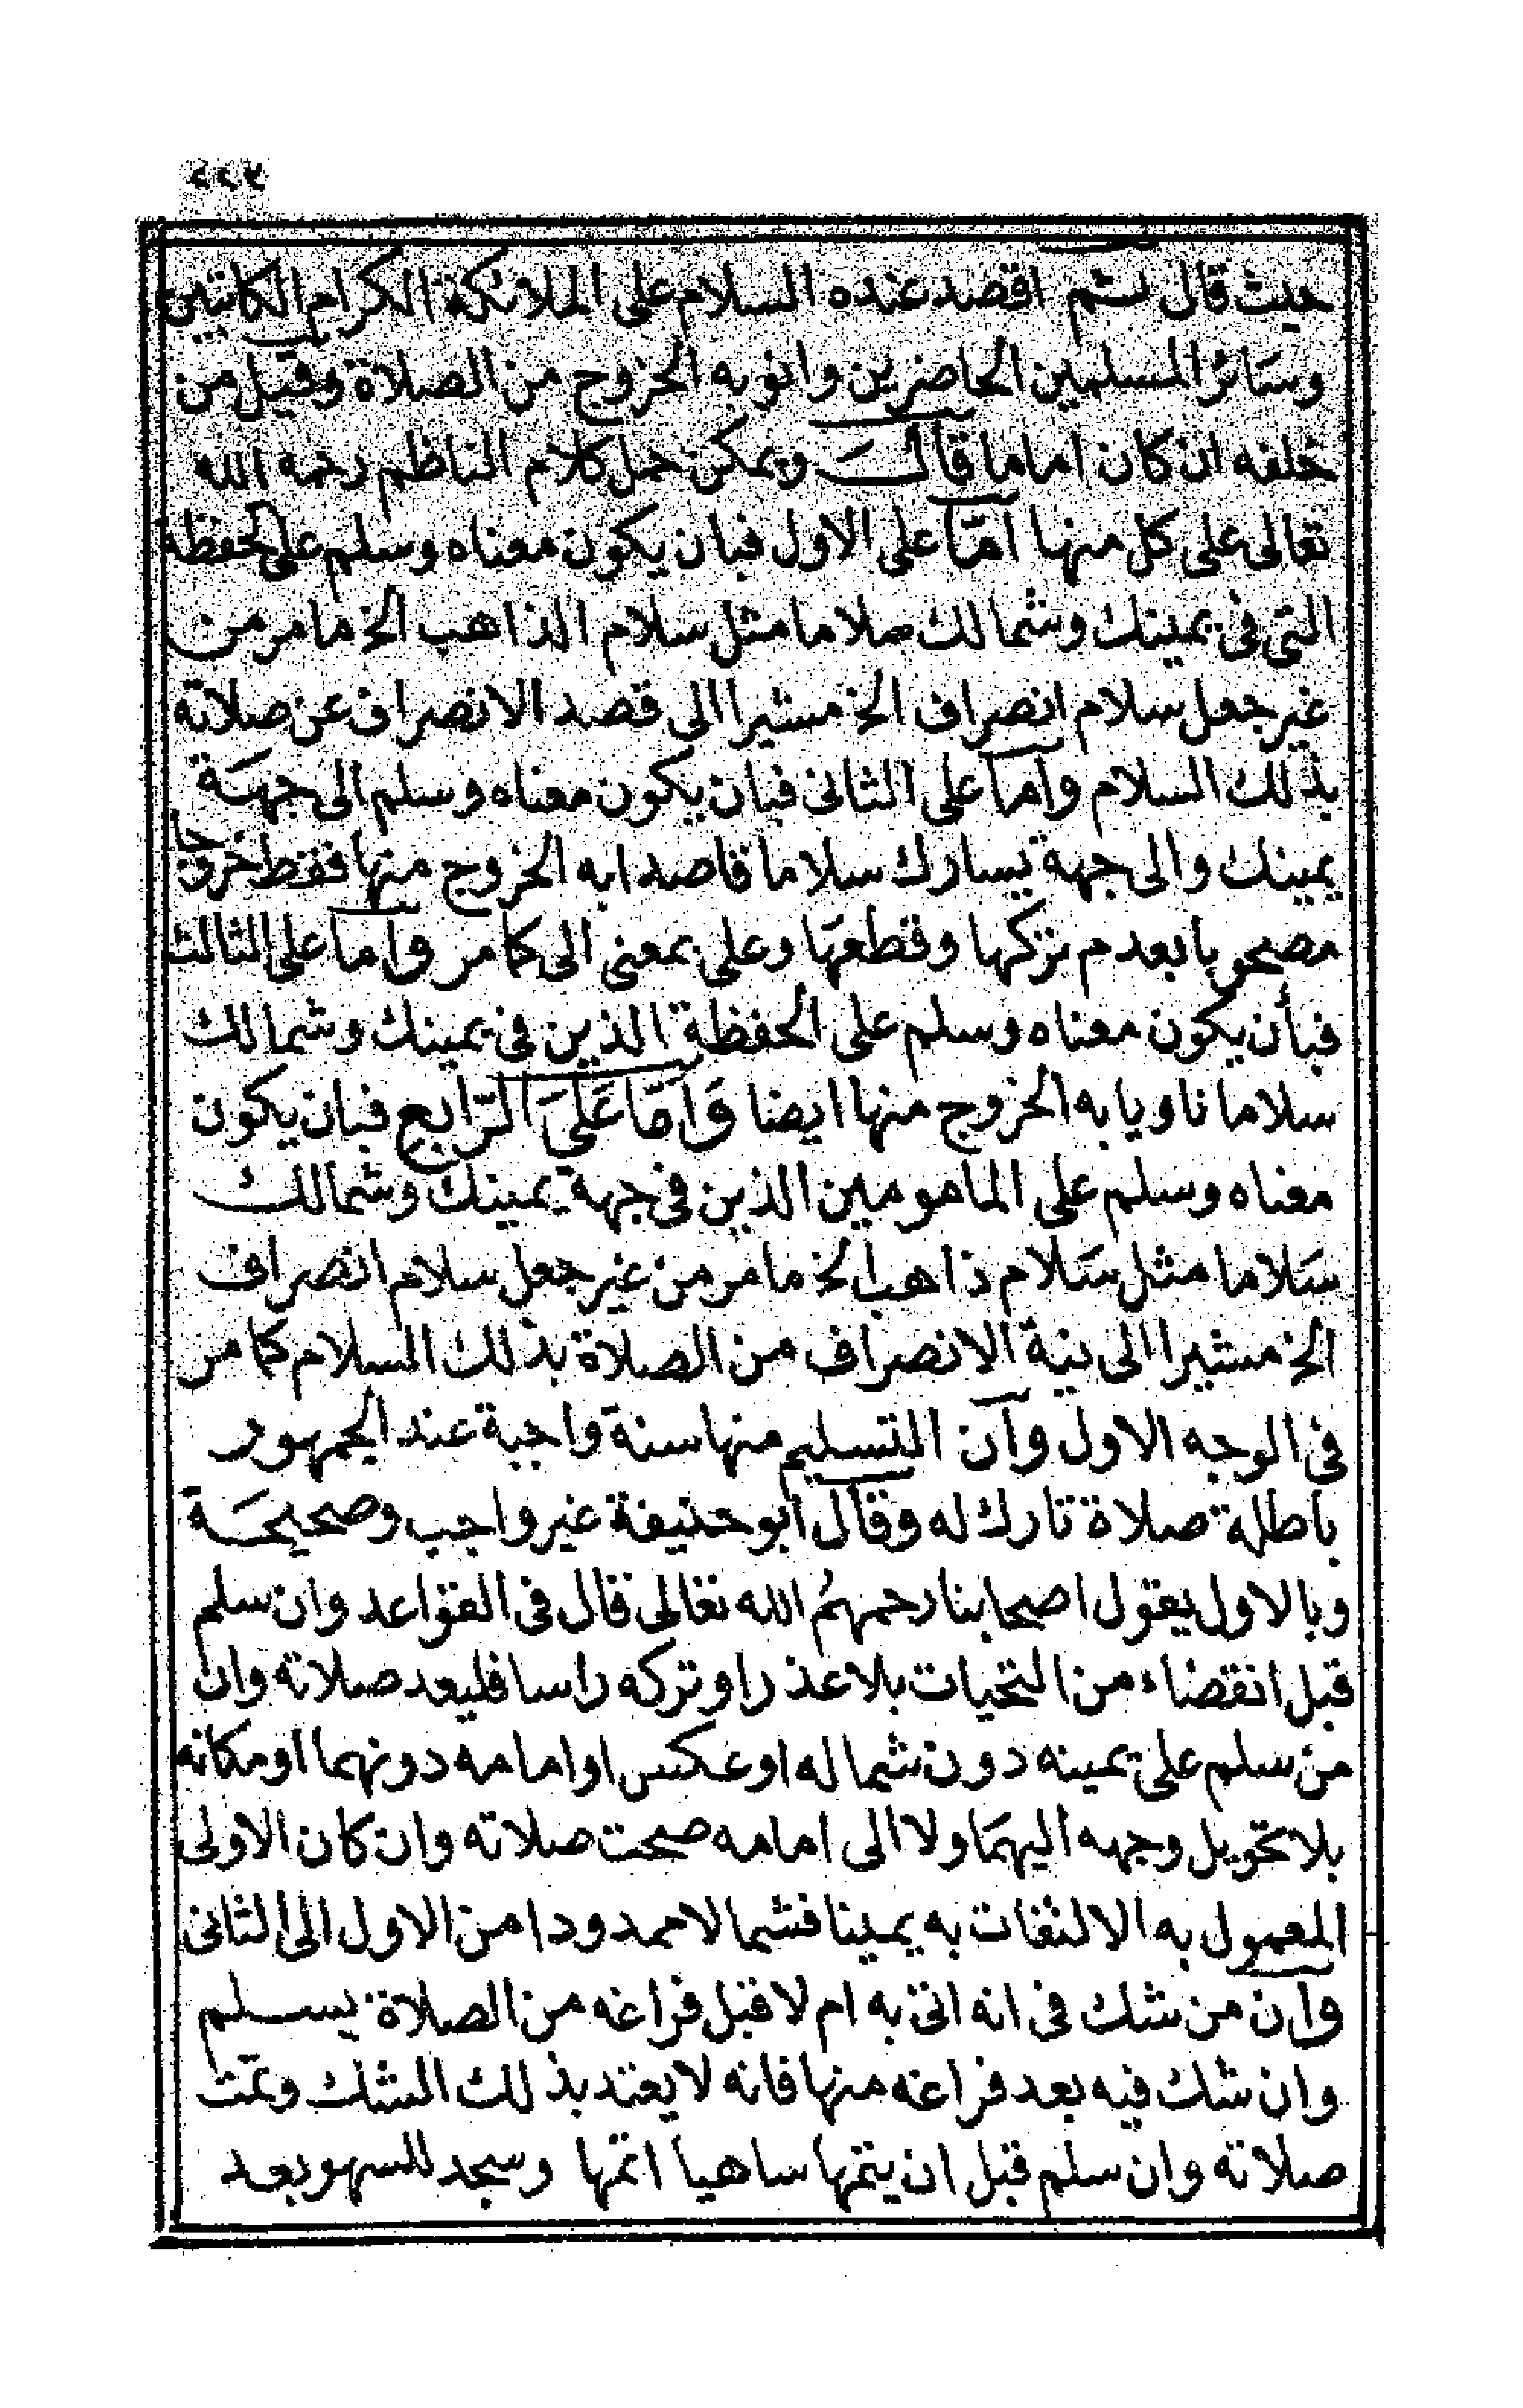 حيث قال ثم اقصد عنده السلام على الملائكة الكرام الكاتبين
وسائر المسلمين الحاضرين وانو به الخروج من الصلاة وقيل من
خلفه ان كان اماما قال ويمكن حمل كلام الناظم رحمه الله
تعالى على كل منها امّا على الاول فبان يكون معناه وسلم على الحفظة
التى فى يمينك وشمالك سلاما مثل سلام الذاهب الخ ما مر من
غير جعل سلام انصراف الخ مشيرا الى قصد الانصراف عن صلاته
بذلك السلام واما على الثانى فبان يكون معناه وسلم الى جهة
يمينك والى جهة يسارك سلاما قاصدا به الخروج منها فقط خروجا
مصحوبا بعدم تركها وقطعها وعلى بمعنى الى كما مر واما على الثالث
فبأن يكون معناه وسلم على الحفظة الذين فى يمينك وشمالك
سلاما ناويا به الخروج منها ايضا وَامَّا عَلَى الرّابع فبان يكون
معناه وسلم على المامومين الذين فى جهة يمينك وشمالك
سَلاما مثل سَلام ذاهب الخ ما مر من غير جعل سلام انصراف
الخ مشيرا الى نية الانصراف من الصلاة بذلك السلام كما مر
فى الوجه الاول وان التسليم منها سنة واجبة عند الجمهور
باطلة صلاة تارك له وقال ابو حنيفة غير واجب وصحيحة
وبالاول يقول اصحابنا رحمهمُ الله تعالى قال فى القواعد وان سلم
قبل انقضاء من التحيات بلا عذر او تركه راسا فليعد صلاته وان
من سلم على يمينه دون شماله او عكس او امامه دونهما او مكانه
بلا تحويل وجهه اليهمَا ولا الى امامه صحت صلاته وان كان الاولى
المعمول به الالتفات به يمينا فشمالا ممدودا من الاول الى الثانى
وان من شك فى انه اتى به ام لا قبل فراغه من الصلاة يسلم
وان شك فيه بعد فراغه منها فانه لا يعتد بذلك الشك وتمت
صلاته وان سلم قبل ان يتمها ساهيا اتمها وسجد للسهو بعد